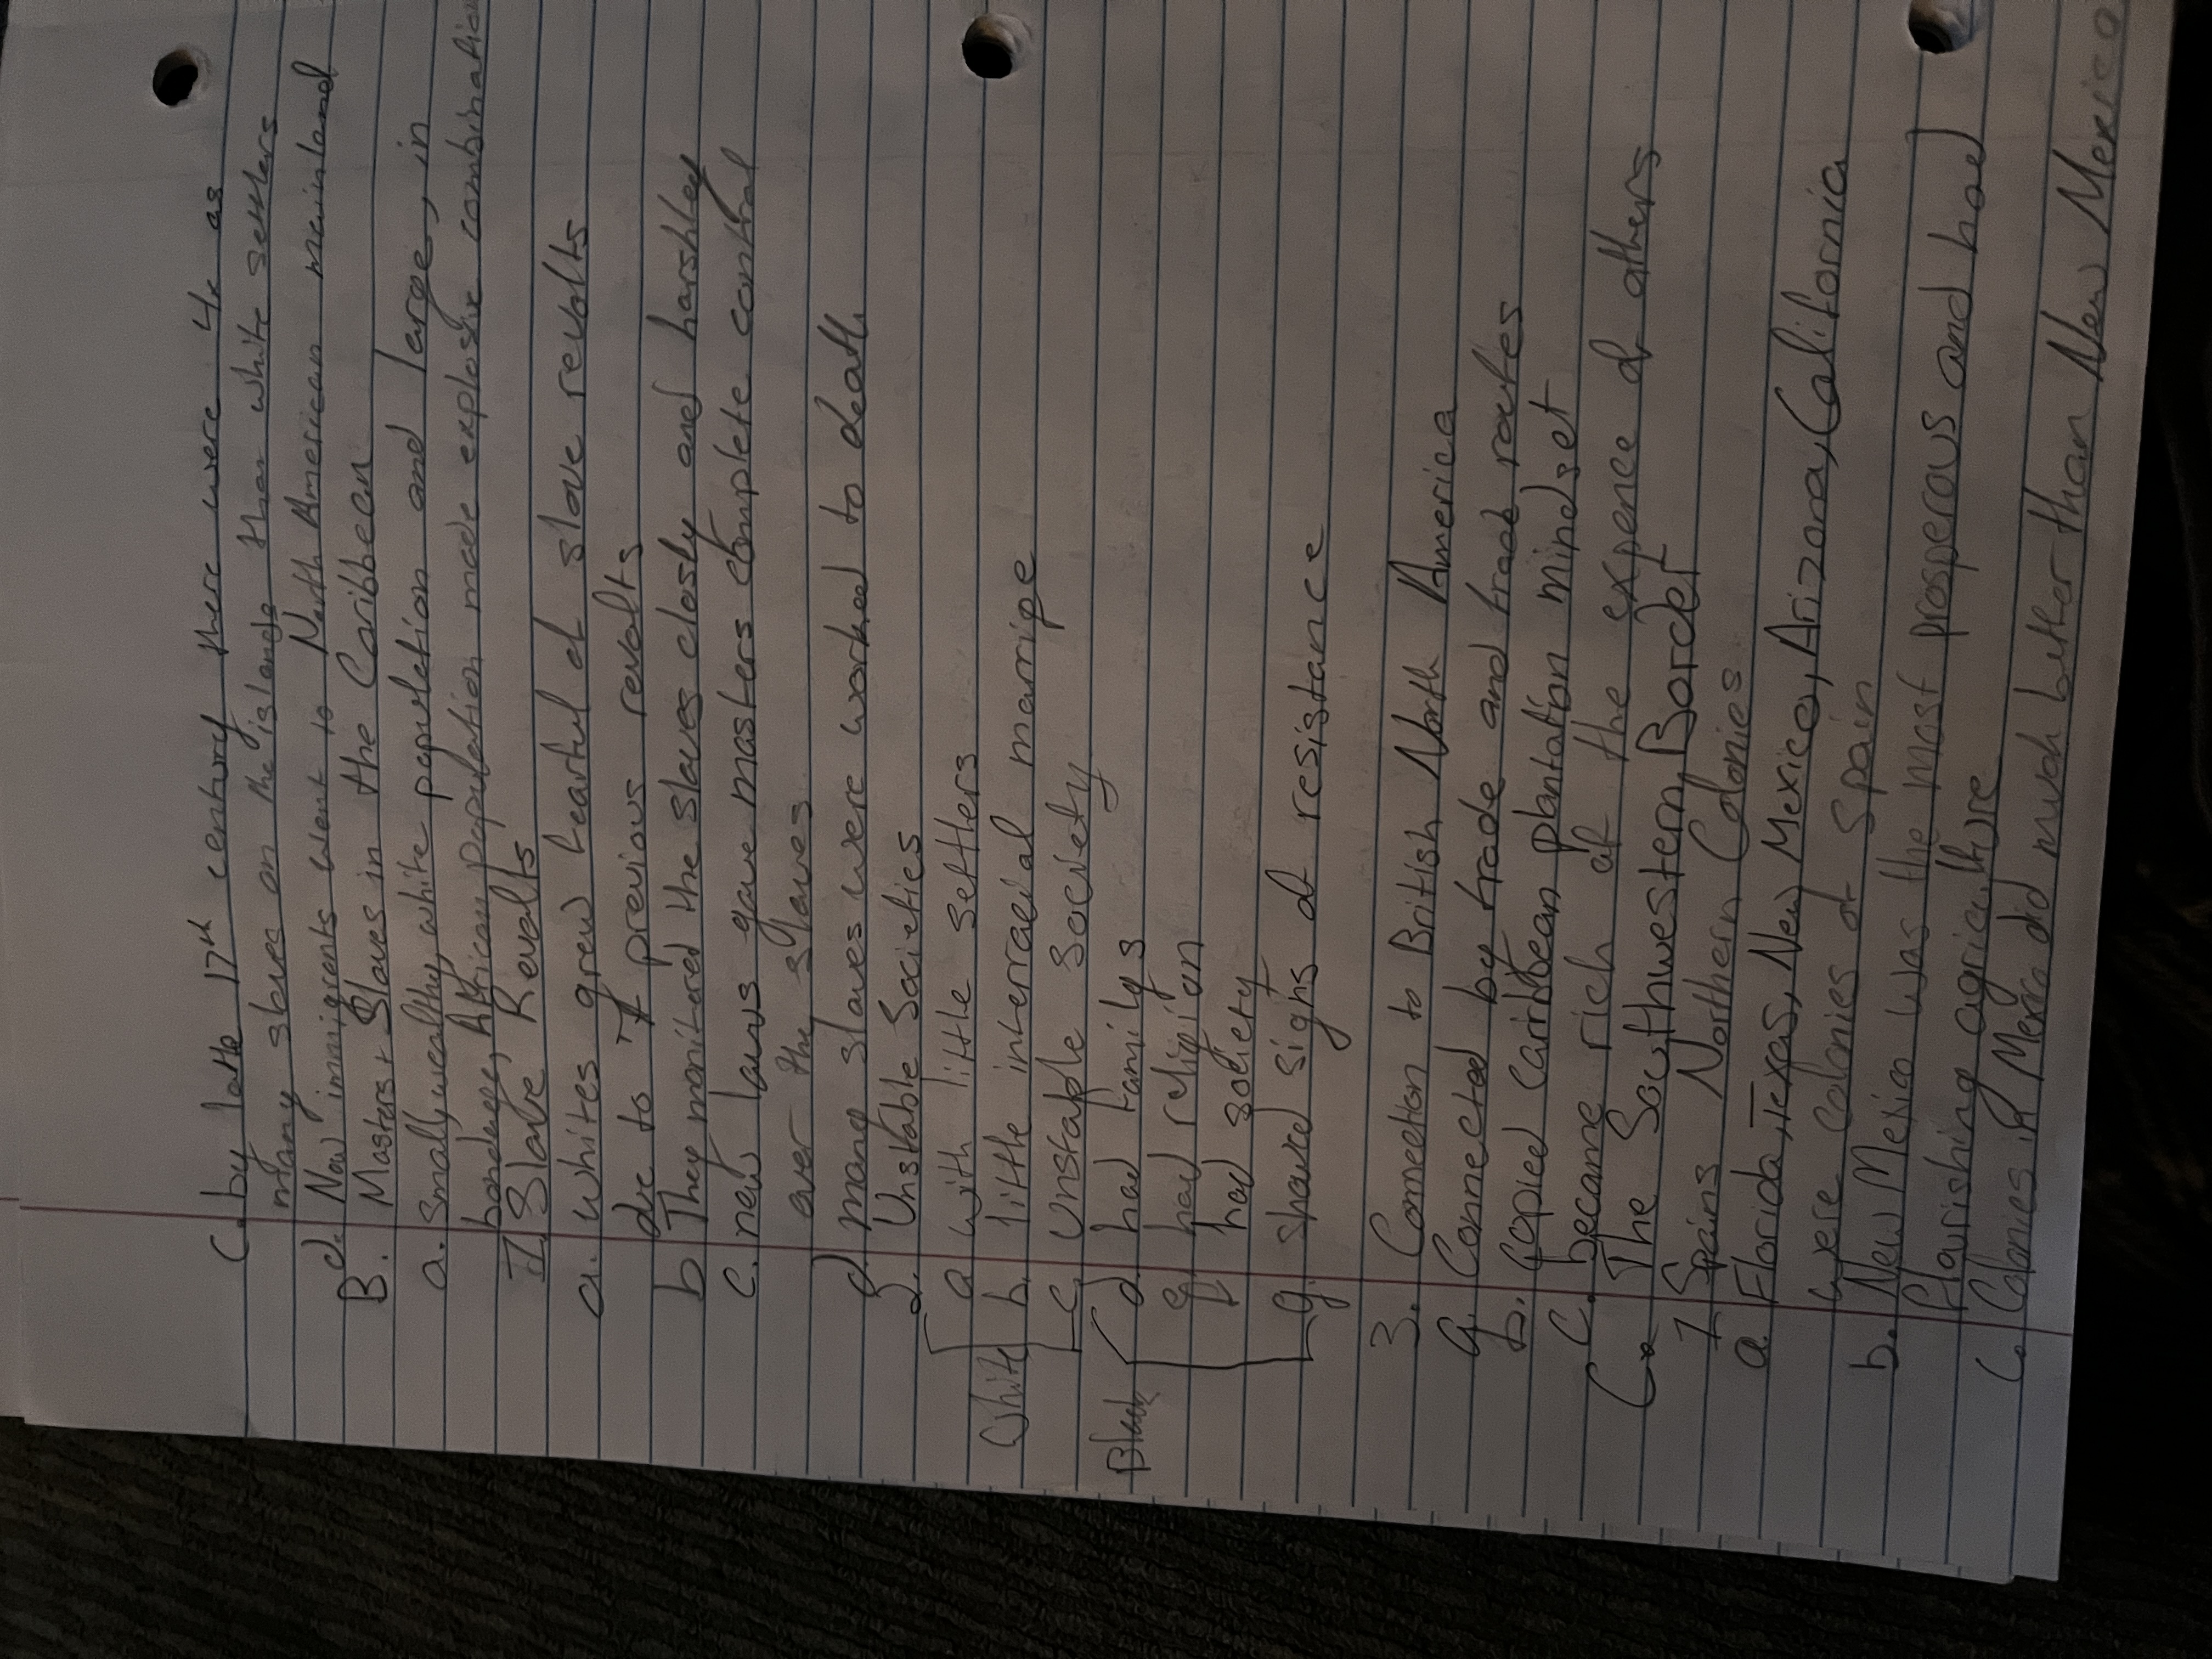 c. by late 17th century there were 4x as
many slaves on the islands than white settlers
d. New immigrants went to North American mainland
B. Masters + Slaves in the Caribbean
a. Small, wealthy, white population and large, in
bondage, African population made explosive combination
I. Slave Revolts
a. whites grew fearful of slave revolts
due to 7 previous revolts
b They monitered the slaves closly and harshley
c. new laws gave masters complete control
over the slaves
d many slaves were worked to death
2. Unstable Societies
White
a with little settlers
b. little interracial marrige
c. Unstable society
Black
d had familys
e. had religion
f. had soliety
g. showed signs of resistance
3. Connection to British North America
a. Connected by trade and trade routes
b. Copied carribean plantation mindset
c. became rich at the expence of others
C. The Southwestern Border
1 Spains Northern Colonies
a. Florida, Texas, New Mexico, Arizona, California
were colonies of Spain
b. New Mexico was the most prosperous and had
flourishing agriculture
c. Colonies in Mexico did much better than New Mexico